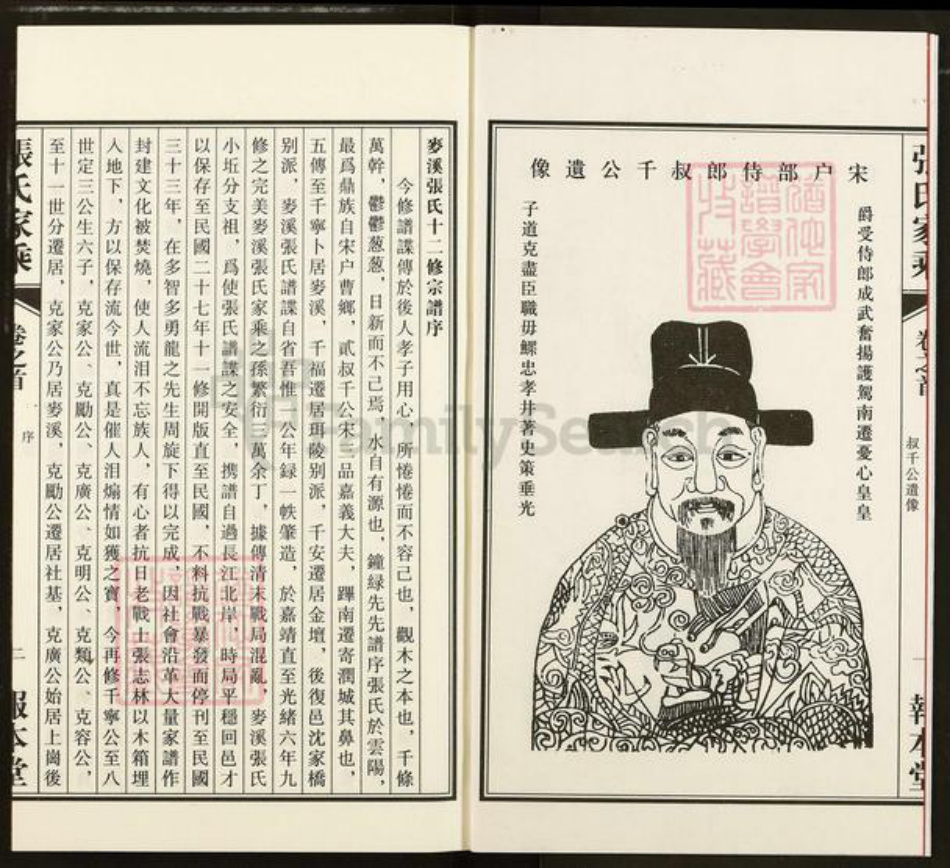 張氏家乘
卷之首
叔千公遺像
一
報本堂
宋户部侍郎叔千公遺像
爵受侍郎成武奮揚護駕南遷憂心皇皇
子道克盡臣職毋鰥忠孝井著史策垂光
麥溪張氏十二修宗譜序
今修譜諜傳於後人孝子用心，所惓惓而不容己也，觀木之本也，千條
萬幹，鬱鬱葱葱，日新而不己焉，水自有源也，鐘緑先先譜序張氏於雲陽，
最爲鼎族自宋户曹鄉，貳叔千公宋三品嘉義大夫，蹕南遷寄潤城其鼻也，
五傳至千寧卜居麥溪，千福遷居珥陵别派，千安遷居金壇，後復邑沈家橋
别派，麥溪張氏譜諜自省吾惟一公年録一帙肇造，於嘉靖直至光緒六年九
修之完美麥溪張氏家乘之孫繁衍三萬余丁，據傳清末戰局混亂，麥溪張氏
小坵分支祖，爲使張氏譜諜之安全，携譜自過長江北岸，時局平穩回邑才
以保存至民國二十七年十一修開版直至民國，不料抗戰暴發而停刊至民國
三十三年，在多智多勇龍之先生周旋下得以完成，因社會沿革大量家譜作
封建文化被焚燒，使人流泪不忘族人，有心者抗日老戰士張志林以木箱埋
入地下，方以保存流今世，真是催人泪煽情如獲之寶，今再修千寧公至八
世定三公生六子，克家公、克勵公、克廣公、克明公、克類公、克容公，
至十一世分遷居，克家公乃居麥溪，克勵公遷居社基，克廣公始居上崗後
張氏家乘
卷之首
序
二
報本堂
FamilySearch